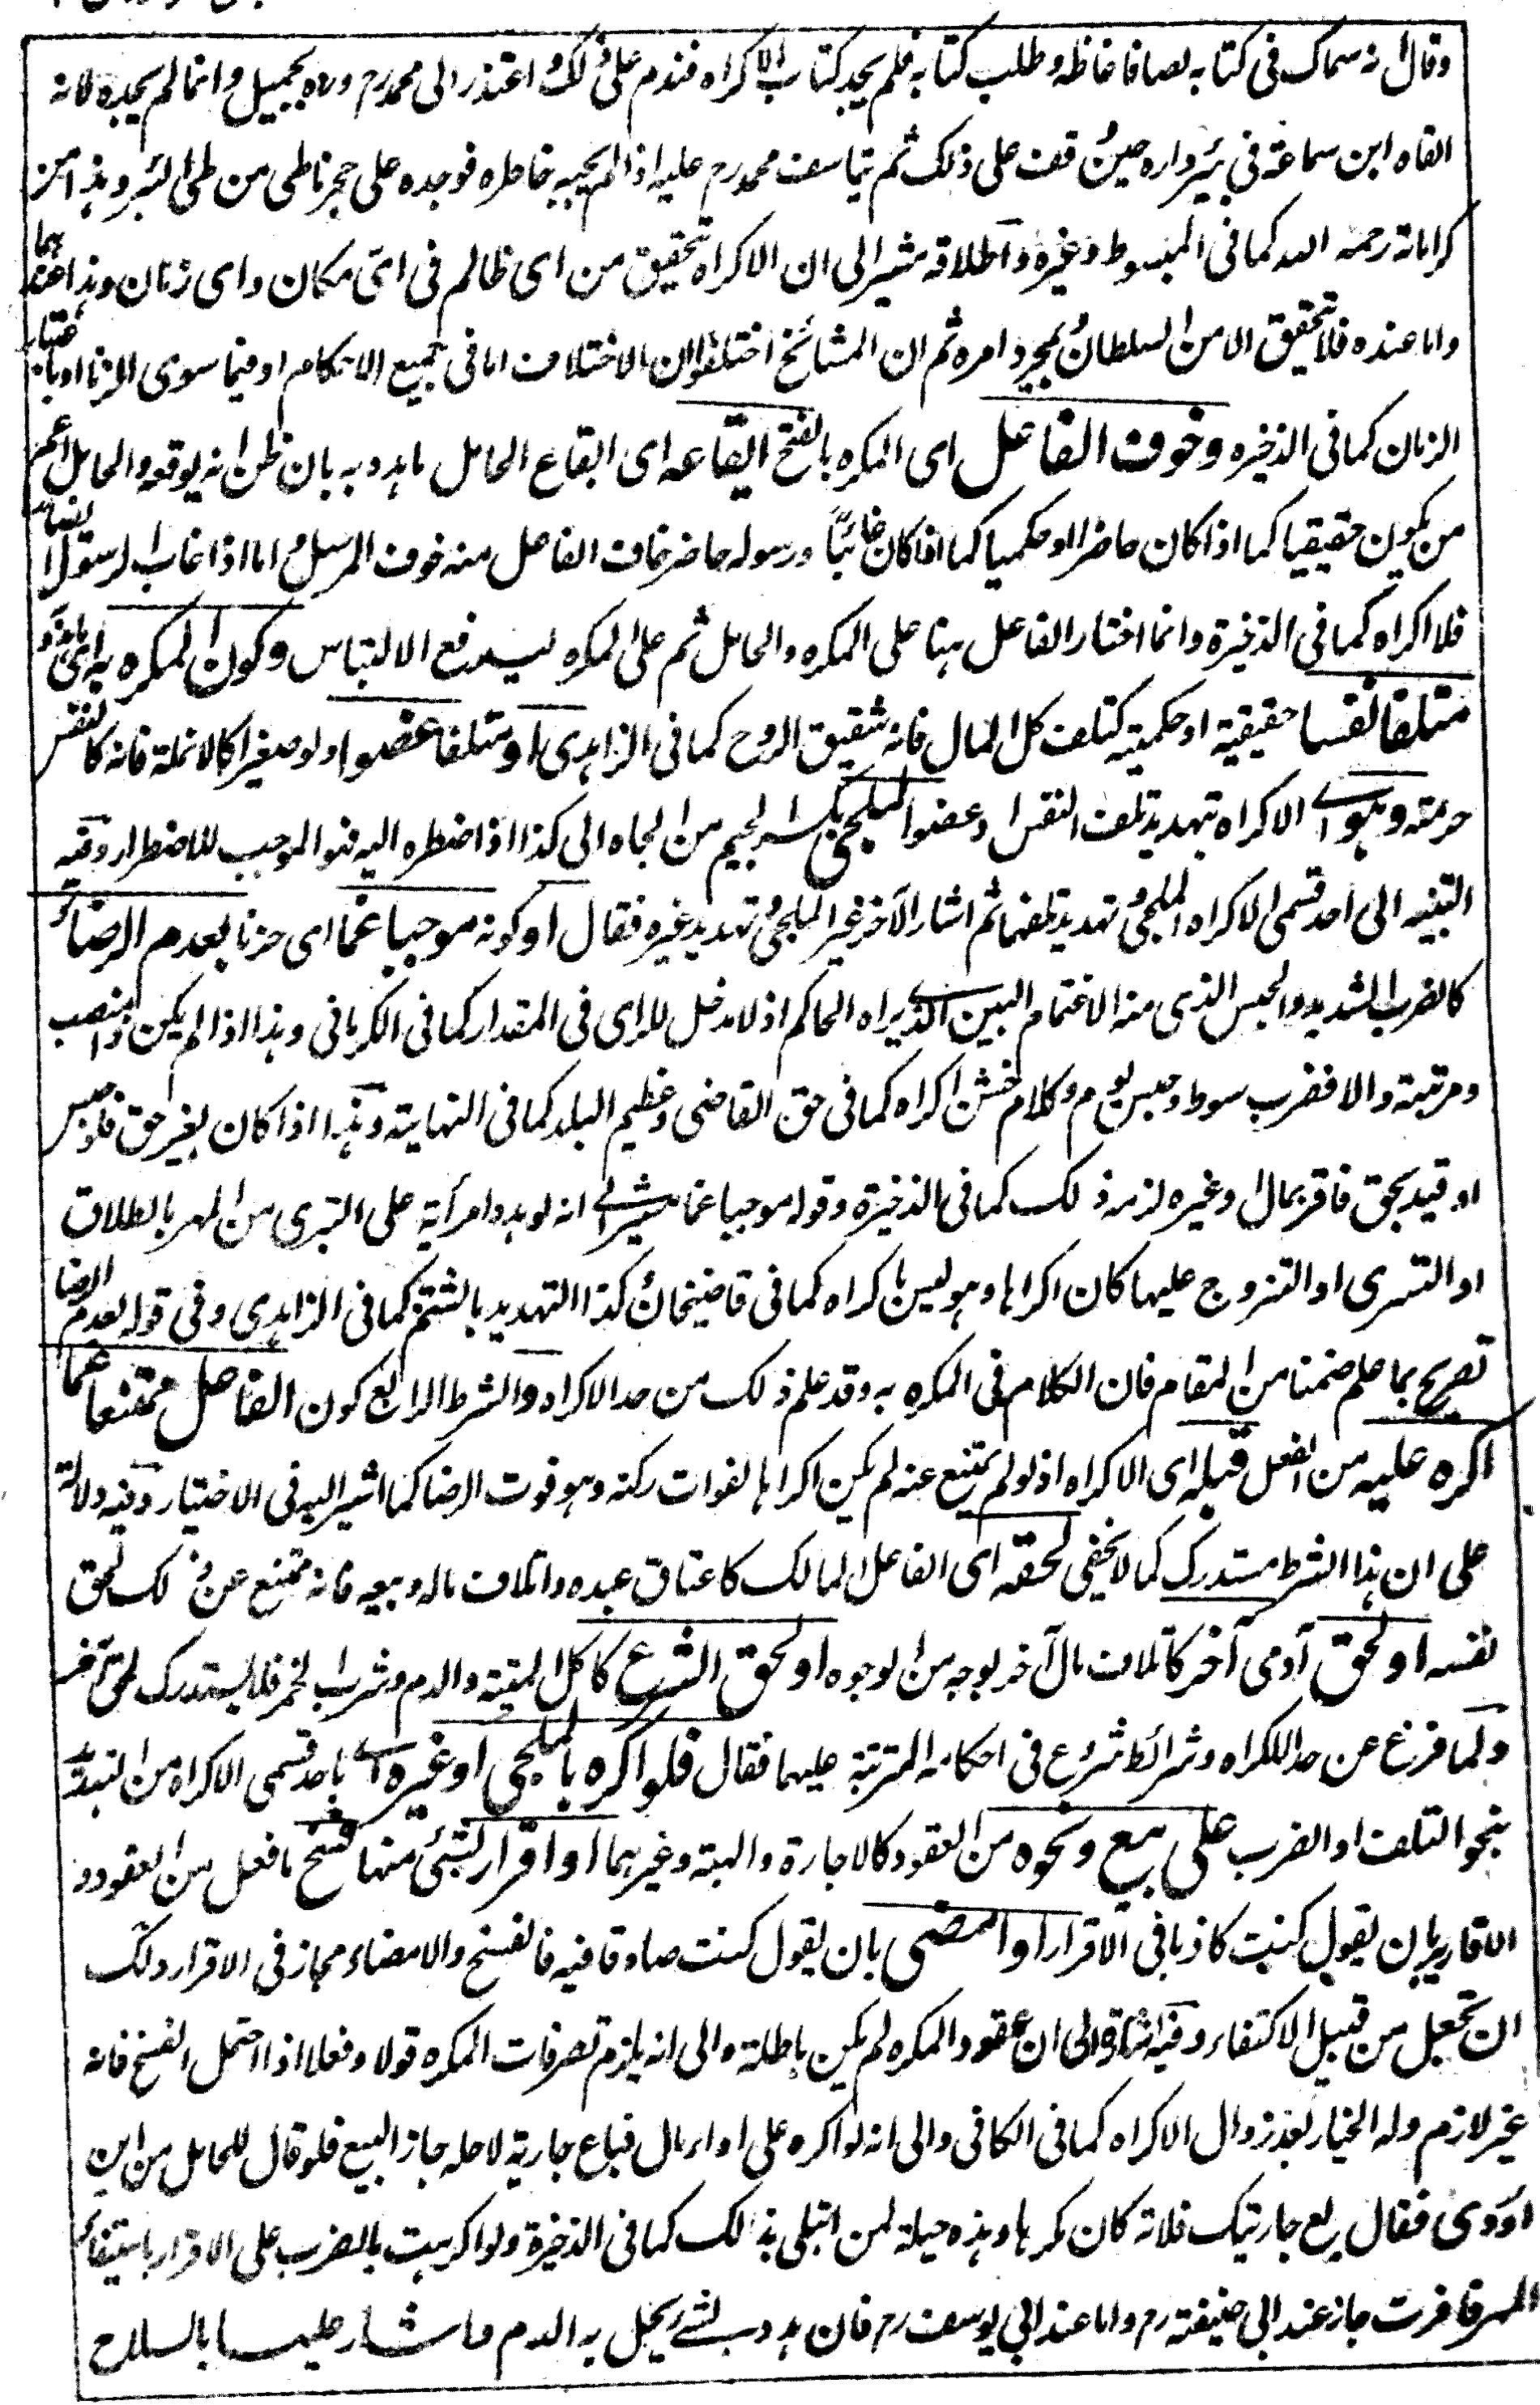 وقال انه سماك فى كتابه لصا فاغاظه وطلب كتابه فلم يجد كتاب الاكراه فندم على ذلك واعتذر الى محمد رح وراه بجميل وانما لم يجده لانه
القاه ابن سماعة فى بئر داره حين وقف على ذلك ثم يتاسف محمد رح عليه اذا لم يجيبه خاطره فوجده على حجر ناطى من طى البئر وهذا من
كراماته رحمه الله كما فى المبسوط وغيره واطلاقه مشير الى ان الاكراه تحقيق من اى ظالم فى اى مكان واى زمان وهذا عندهما
واما عنده فلا تحقيق الا من السلطان بمجرد امره ثم ان المشائخ اختلفوا ان الاختلاف اما فى جميع الاحكام او فيما سوى الزنا او باختيار
الزمان كما فى الذخيره وخوف الفاعل اى المكره بالفتح ايقاعه اى ايقاع الحامل ما هدد به بان ظن انه يوقعه والحامل اعم
من يكون حقيقيا كما اذا كان حاضرا او حكميا كما اذا كان غائبا ورسوله حاضر خاف الفاعل منه خوف المرسل اما اذا غاب الرسول ايضا
فلا اكراه كما فى الذخيرة وانما اختار الفاعل هنا على المكره والحامل ثم على المكره ليندفع الالتباس وكون المكره به اى
متلفا نفسا حقيقية او حكمية كتلف كل المال فانه شقيق الروح كما فى الزاهدى او متلفا عضوا ولو صغيرا كالانملة فانه كالنفس
حرمة وهو اى الاكراه تهديد تلف النفس او عضو الملجى بكسر الجيم من الجاه الى كذا اذا اضطره اليه فهو الموجب للاضطرار وفيه
التنبيه الى احد قسمى الاكراه الملجئ تهديد تلفهما ثم اشار الآخر غير الملجئ تهديد غيره فقال او كونه موجبا غما اى حزنا بعدم الرضاء
كالضرب الشديد والحبس الذى منه الاغتمام البين الذى يراه الحاكم اذ لا مدخل للراى فى المقدار كما فى الكرمانى وهذا اذا لم يكن ذا منصب
ومرتبة والا فضرب سوط وحبس يوم وكلام خشن اكراه كما فى حق القاضى وعظيم البلد كما فى النهاية وهذا اذا كان بغير حق فلو حبس
او قيد بحق فاقر بمال او غيره لزمه ذلك كما فى الذخيرة وقوله موجبا غما مشير الى انه لو هدد امرأته على التبرى من المهر بالطلاق
او التسرى او التزوج عليها كان اكراها وهو ليس باكراه كما فى قاضيخان كذا التهديد بالشتم كما فى الزاهدى وفى قوله بعدم الرضا
تصريح بما علم ضمنا من المقام فان الكلام فى المكره به وقد علم ذلك من حد الاكراه والشرط الرابع كون الفاعل ممتنعا عما
اكره عليه من الفعل قبله اى الاكراه اذ لو لم يمتنع عنه لم يكن اكراها لفوات ركنه وهو فوت الرضا كما اشير اليه فى الاختيار وفيه دلالة
على ان هذا الشرط مستدرك كما لا يخفى لحقه اى الفاعل المالك كاعتاق عبده واتلاف ماله وبيعه فانه ممتنع عن ذلك لحق
نفسه او لحق آدمى آخر كاتلاف مال آخر بوجه من الوجوه او لحق الشرع كاكل الميتة والدم وشرب الخمر فلا يستدرك لحق آخر
ولما فرغ عن حد الاكراه وشرائط شرع فى احكامه المترتبة عليهما فقال فلو اكره بالملجى او غيره اى باحد قسمى الاكراه من التهديد
بنحو التلف او الضرب على بيع ونحوه من العقود كالاجارة والهبة وغيرهما او اقرار بشئ منها فسخ ما فعل من العقود و
الاقارير بان يقول كنت كاذبا فى الاقرار او امضى بان يقول كنت صادقا فيه فالفسخ والامضاء مجاز فى الاقرار ولك
ان تجعل من قبيل الاكتفاء وفيه اشارة الى ان عقود المكره لم يكن باطلة والى انه يلزم تصرفات المكره قولا وفعلا اذا احتمل الفسخ فانه
غير لازم وله الخيار بعد زوال الاكراه كما فى الكافى والى انه لو اكره على اداء مال فباع جارية لاجله جاز البيع فلو قال للحامل من اين
اودى فقال بع جاريتك فلانة كان مكرها وهذه حيلة لمن ابتلى بذلك كما فى الذخيرة ولو اكرهت بالضرب على الاقرار باستيفاء
المهر فاقرت جاز عند ابى حنيفة رح واما عند ابى يوسف رح فان هدد بشئ يحل به الدم فاشار عليها بالسلاح